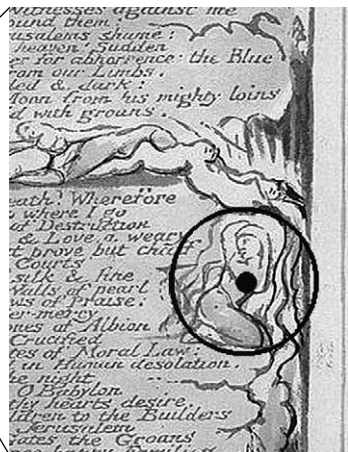 witnesses against me
ound them:
usalems shame:
heaven Sudden
er for abhorrence: the Blue
rom our Limbs.
led & dark:
Moon from his mighty loins
d with groans.
eath! Wherefore
where I go
of Destruction
& Love, a weary
t prove but chaff
Courts
silk & fine
Walls of pearl
ws of Praise:
er-mercy
ones of Albion
Crucified
tes of Moral Law:
in Human desolation.
he night
O Babylon
thy hearts desire.
ildren to the Builders
Jerusalem
ates, the Groans
happy Families